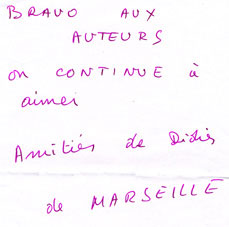 BRAVO AUX
AUTEURS
on CONTINUE à
aimer
Amitiés de Didier
de MARSEILLE